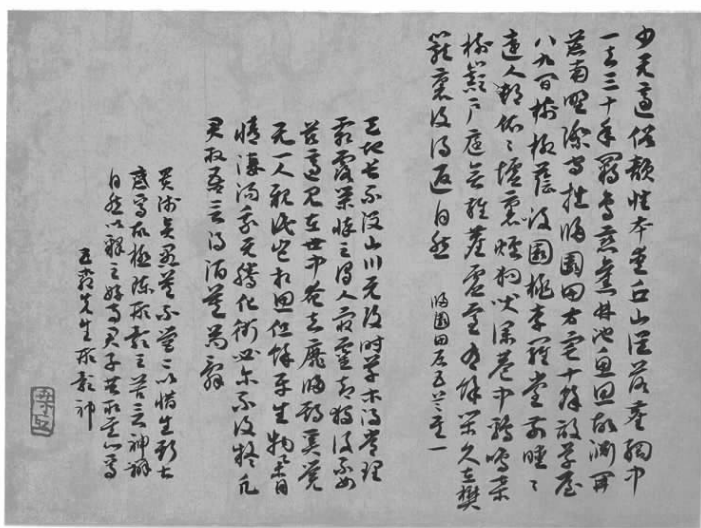 少无適俗韻性本愛丘山误落塵網中
一去三十年羈鳥戀舊林池魚思故淵開
荒南野際守拙歸園田方宅十餘畝草屋
八九间榆柳蔭後園桃李羅堂前曖々
遠人村依々墟里煙狗吠深巷中鷄鳴桑
樹巔户庭無雜塵虛室有餘閑久在樊
籠裏復得返自然 歸園田居五首之一
天地長不没山川无改時草木得常理
霜露榮悴之 人最靈智獨復不如
兹適見在世中奄去靡歸期奚覺
无一人親識豈相思但餘平生物舉目
情悽洏我无騰化術必尔不復疑願
君取吾言得酒莫苟辭
貴賤賢愚莫不營々以惜生斯甚
惑焉故極陳形影之苦言神辨
自然以釋之好事君子共取其心焉
五柳先生形影神